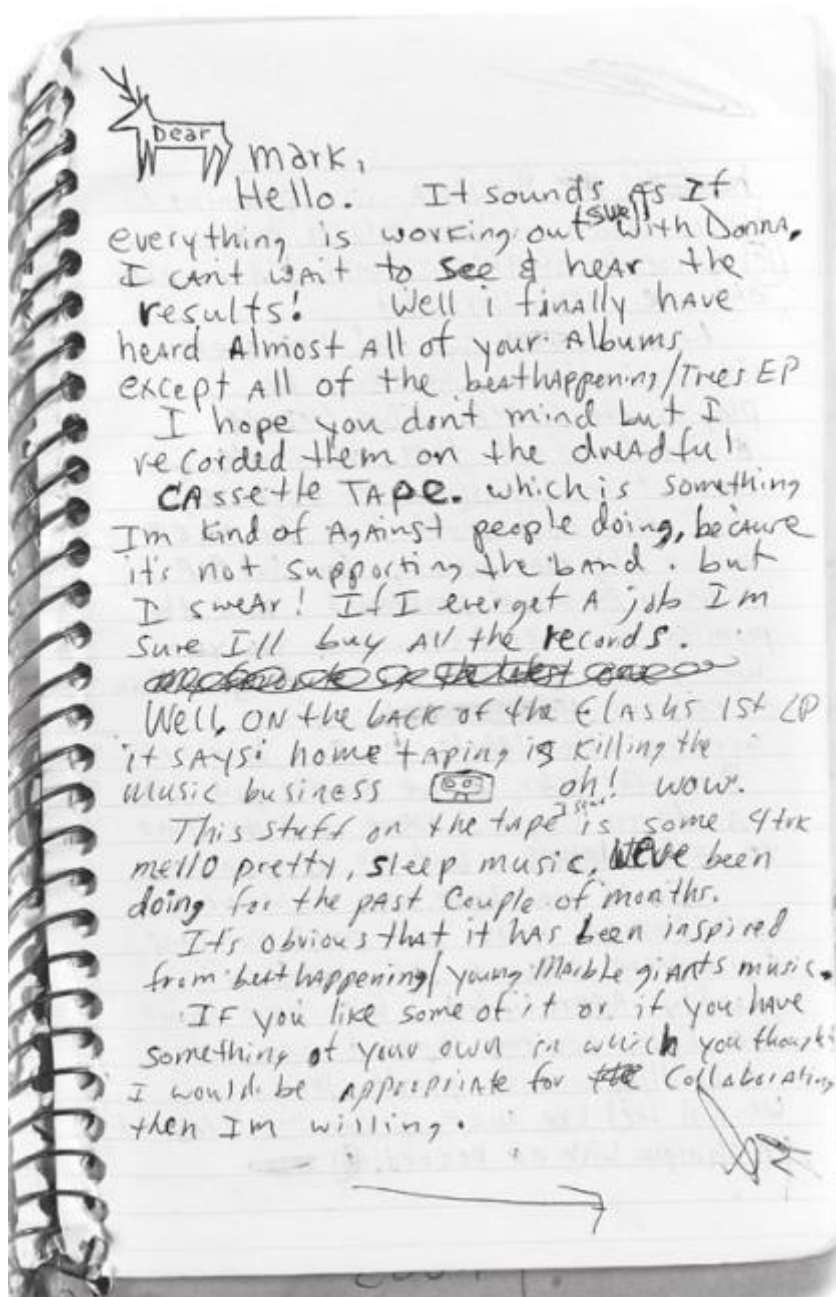 Dear
mark,
Hello. It sounds as If
everything is working out swell with Donna,
I cAnt wait to see & heAr the
results! Well i finally have
heard Almost All of your Albums
except All of the beathappening/Trees EP
I hope you dont mind but I
recorded them on the dreAdful
CAssette TApe. which is something
Im kind of AgAinst people doing, becAuse
it's not supporting the bAnd. but
I sweAr! If I ever get A job Im
sure Ill buy All the records.
Well, ON the bACK of the ClAsh's 1st LP
it sAys: home tAping is killing the
music business oh! wow.
This stuff on the tApe is some 4trk
mello pretty, sleep music, weve been
doing for the pAst Couple of months.
It's obvious thAt it hAs been inspired
from beathappening/young Marble giAnts music.
IF you like some of it or if you hAve
something of your own in which you thought
I would be AppropriAte for Collaborating
then Im willing.